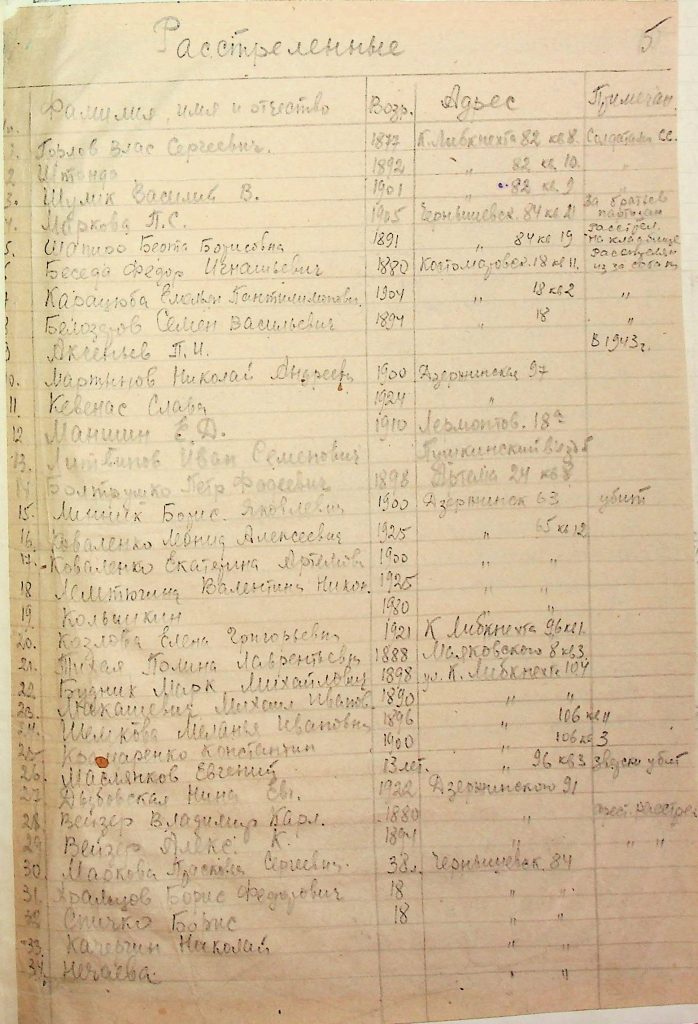 Расстреленные 5
Фамилия, имя и отчество Возр. Адрес Примечан.
1. Горлов Влас Сергеевич. 1877 К. Либкнехта 82 кв 8. Солдатами СС.
2 Штонда 1892 " 82 кв. 10. "
3. Шулик Василий В. 1901 " 82 кв. 9
4. Маркова П.С. 1905 Чернышевск. 84 кв 21 За братьев партизан
5. Шапиро Берта Борисовна 1891 " 84 кв 19 Расстрел. на кладбище
6 Беседа Федор Игнатьевич 1880 Костомаровск. 18 кв 11. из за собаки
7 Карацюба Емельян Пантилимонович. 1904 " 18 кв 2 "
8 Белозоров Семен Васильевич 1894 " 18 "
9 Аксеньев П.И. В 1943 г.
10. Мартынов Николай Андреев 1900 Дзержинская 97
11. Кевенас Слава 1924 "
12 Маншин Е.Д. 1910 Лермонтов. 18а
13. Литвинов Иван Семенович Пушкинский въезд
14 Болтрушко Петр Фадеевич 1898 Артема 24 кв 8
15. Линник Борис Яковлевич 1900 Дзержинск 63 убит
16. Коваленко Леонид Алексеевич 1925 " 65 кв 12
17. Коваленко Екатерина Артемовна 1900 " "
18 Лемтюгина Валентина Никон. 1925 " "
19. Колышкин 1980 " "
20. Козлова Елена Григорьевна 1921 К Либкнехта 96 кв 1.
21. Полина Лаврентьевна 1888 Маяковского 8 кв 3.
22. Будник Марк Михайлович 1898 ул. К. Либкнехта 104
23. Лукашевич Михаил Иванов. 1890 " "
24. Шемкова Меланья Ивановна 1896 " 106 кв
25. Константин 1900 " 106 кв 3
26. Маслянков Евгений 13 лет. " 96 кв 3 Зверски убит
27 Дыбовская Нина Евг. 1922 Дзержинского 91
28. Вейзер Владимир Карл. 1880 " расстрел
29 Вейзер Алекс. К. 1891 " "
30. Маркова Прасковья Сергеевна. 38 л. Чернышевск. 84
31. Хральцов Борис Федорович 18 " "
32 Спичко Борис 18 " "
33. Качергин Николай " "
34. Нечаева. " "